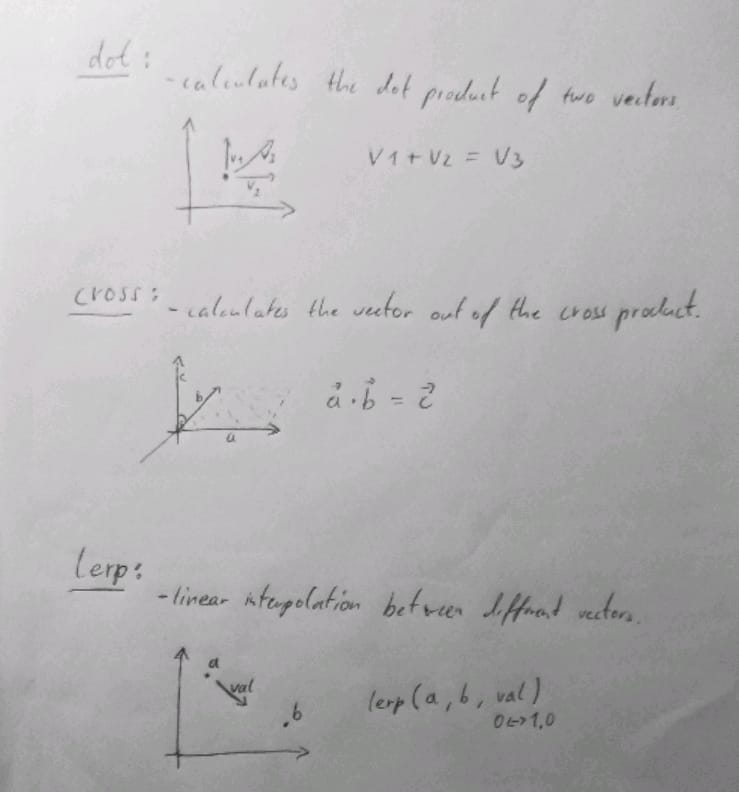 dot:
- calculates the dot product of two vectors.
V1 V3
V2
V1 + V2 = V3
cross:
- calculates the vector out of the cross product.
c
b
a
a⃗ · b⃗ = c⃗
lerp:
- linear interpolation between different vectors.
a
val
b
lerp(a, b, val)
0↔1,0